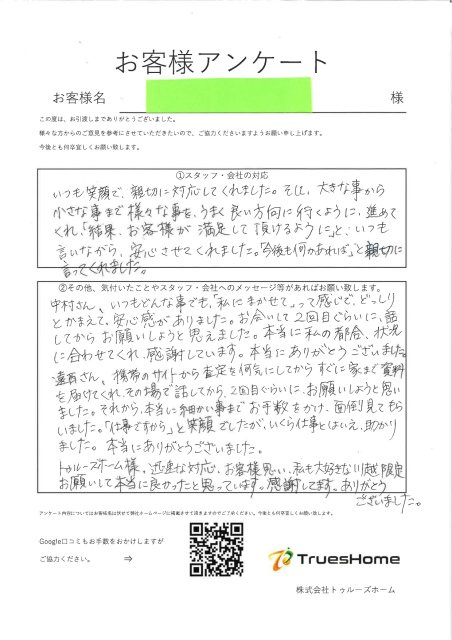 お客様アンケート
お客様名 様
この度は、お引渡しまでありがとうございました。
様々な方からのご意見を参考にさせていただきたいので、ご協力くださいますようお願い申し上げます。
今後とも何卒宜しくお願い致します。
①スタッフ・会社の対応
いつも笑顔で、親切に対応してくれました。そして、大きな事から
小さな事まで様々な事を、うまく良い方向に行くように、進めて
くれ、「結果、お客様が満足して頂けるように」と、いつも
言いながら、安心させてくれました。「今後も何かあれば」と親切に
言ってくれました。
②その他、気付いたことやスタッフ・会社へのメッセージ等があればお願い致します。
中村さん、いつもどんな事でも、「私にまかせて。」って感じで、どっしり
とかまえて、安心感がありました。お会いして2回目ぐらいに、話
してからお願いしようと思えました。本当に私の都合、状況
に合わせてくれ、感謝しています。本当にありがとうございました。
さん、携帯のサイトから査定を何気にしてからすぐに家まで資料
を届けてくれ、その場で話してから、2回目ぐらいに、お願いしようと思い
ました。それから、本当に細かい事までお手数をかけ、面倒見てもら
いました。「仕事ですから」と笑顔でしたが、いくら仕事とはいえ、助かり
ました。本当にありがとうございました。
トゥルーズホーム様、迅速な対応、お客様思い、私も大好きな川越限定
お願いして本当に良かったと思っています。感謝してます。ありがとう
ございました。
アンケート内容についてはお客様名は伏せて弊社ホームページに掲載させて頂きますのでご了承ください。今後とも何卒宜しくお願い致します。
Google口コミもお手数をおかけしますが
ご協力ください。 ⇒
TruesHome
株式会社トゥルーズホーム